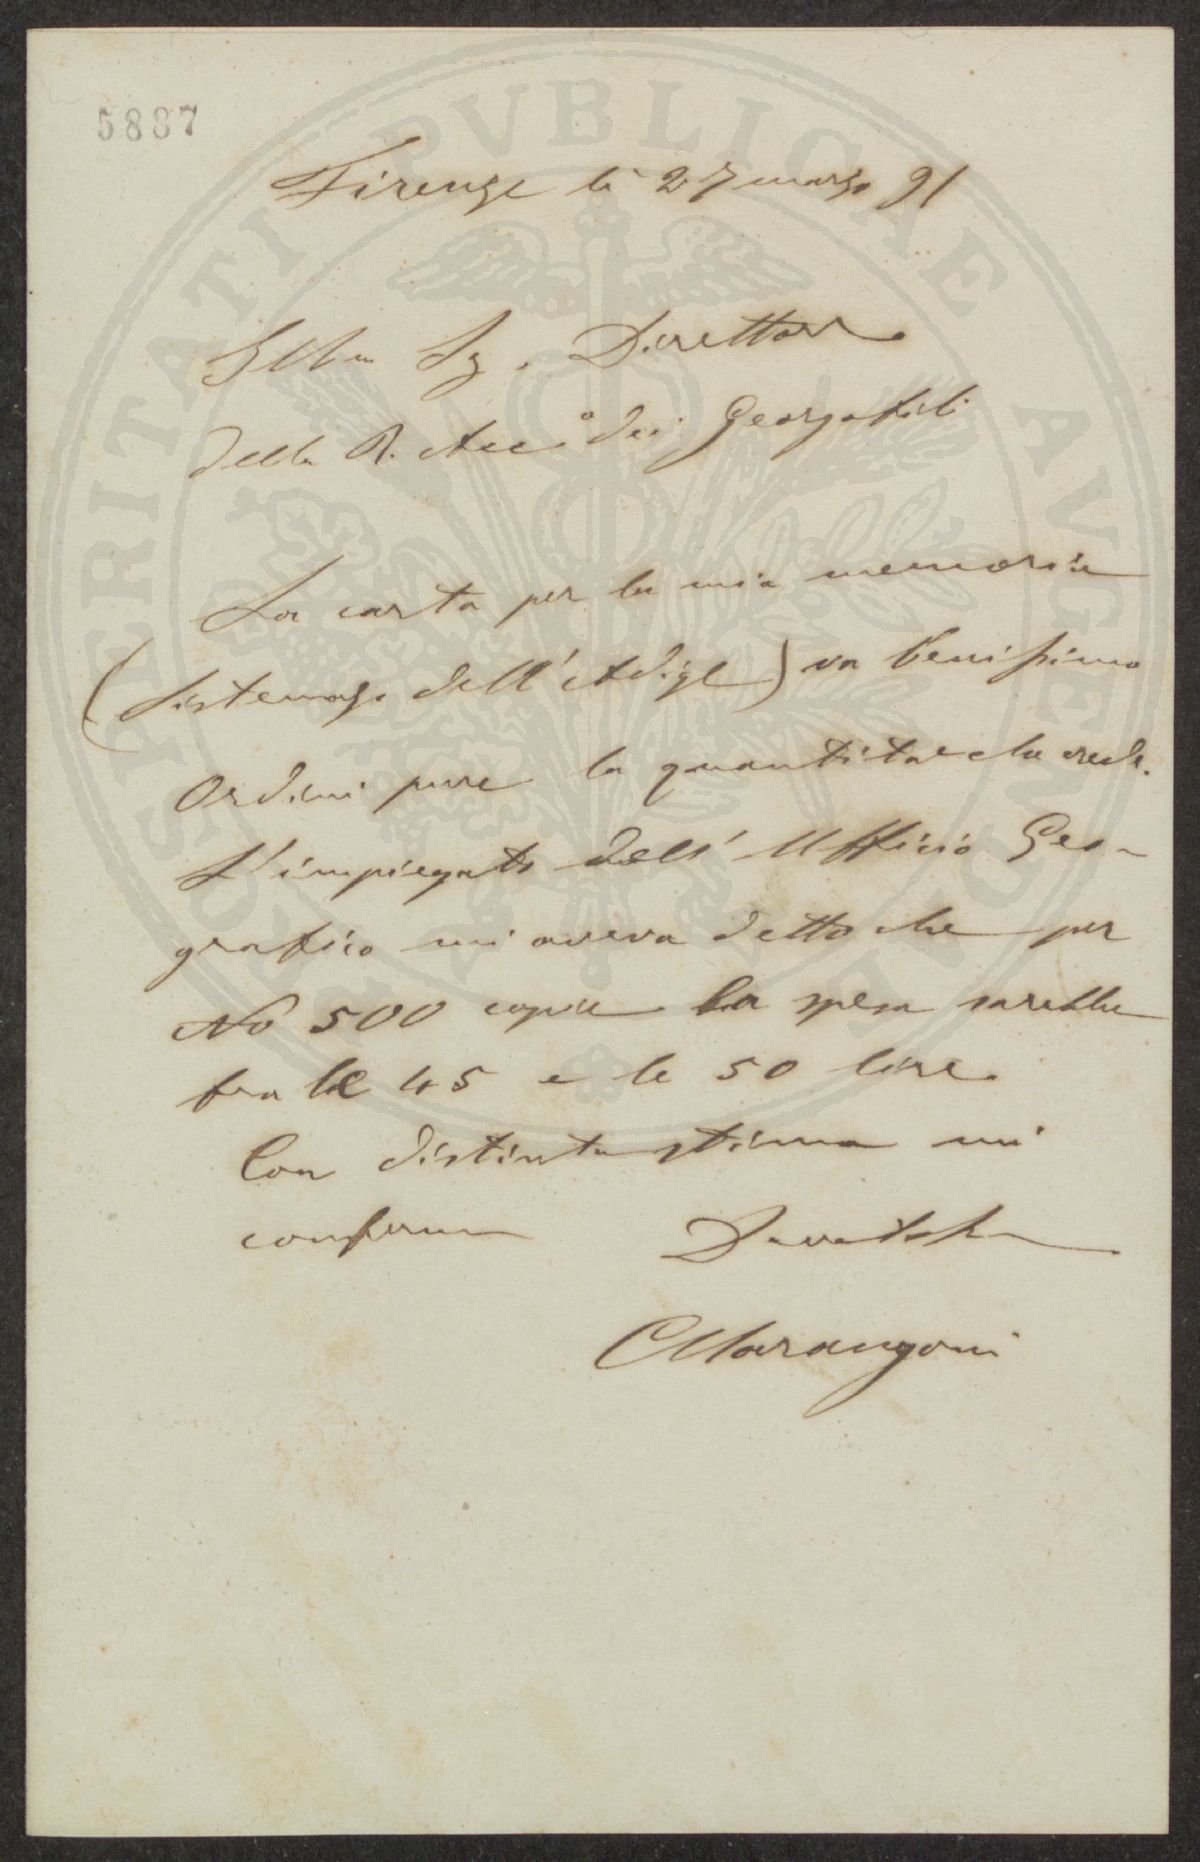 5887
Firenze li 27 marzo 91
Illm Sg. Direttore
della R. Acc.a dei Georgofili
La carta per la mia memoria
(Sistemaz. dell'Adige) va benissimo
Ordini pure la quantità che crede.
L'impiegato dell'Ufficio Geo-
grafico mi aveva detto che per
No 500 copie la spesa sarebbe
fra le 45 e le 50 lire.
Con distinta stima mi
confermo Devotiss
CMarangoni
PROSPERITATI PVBLICAE AVGENDAE